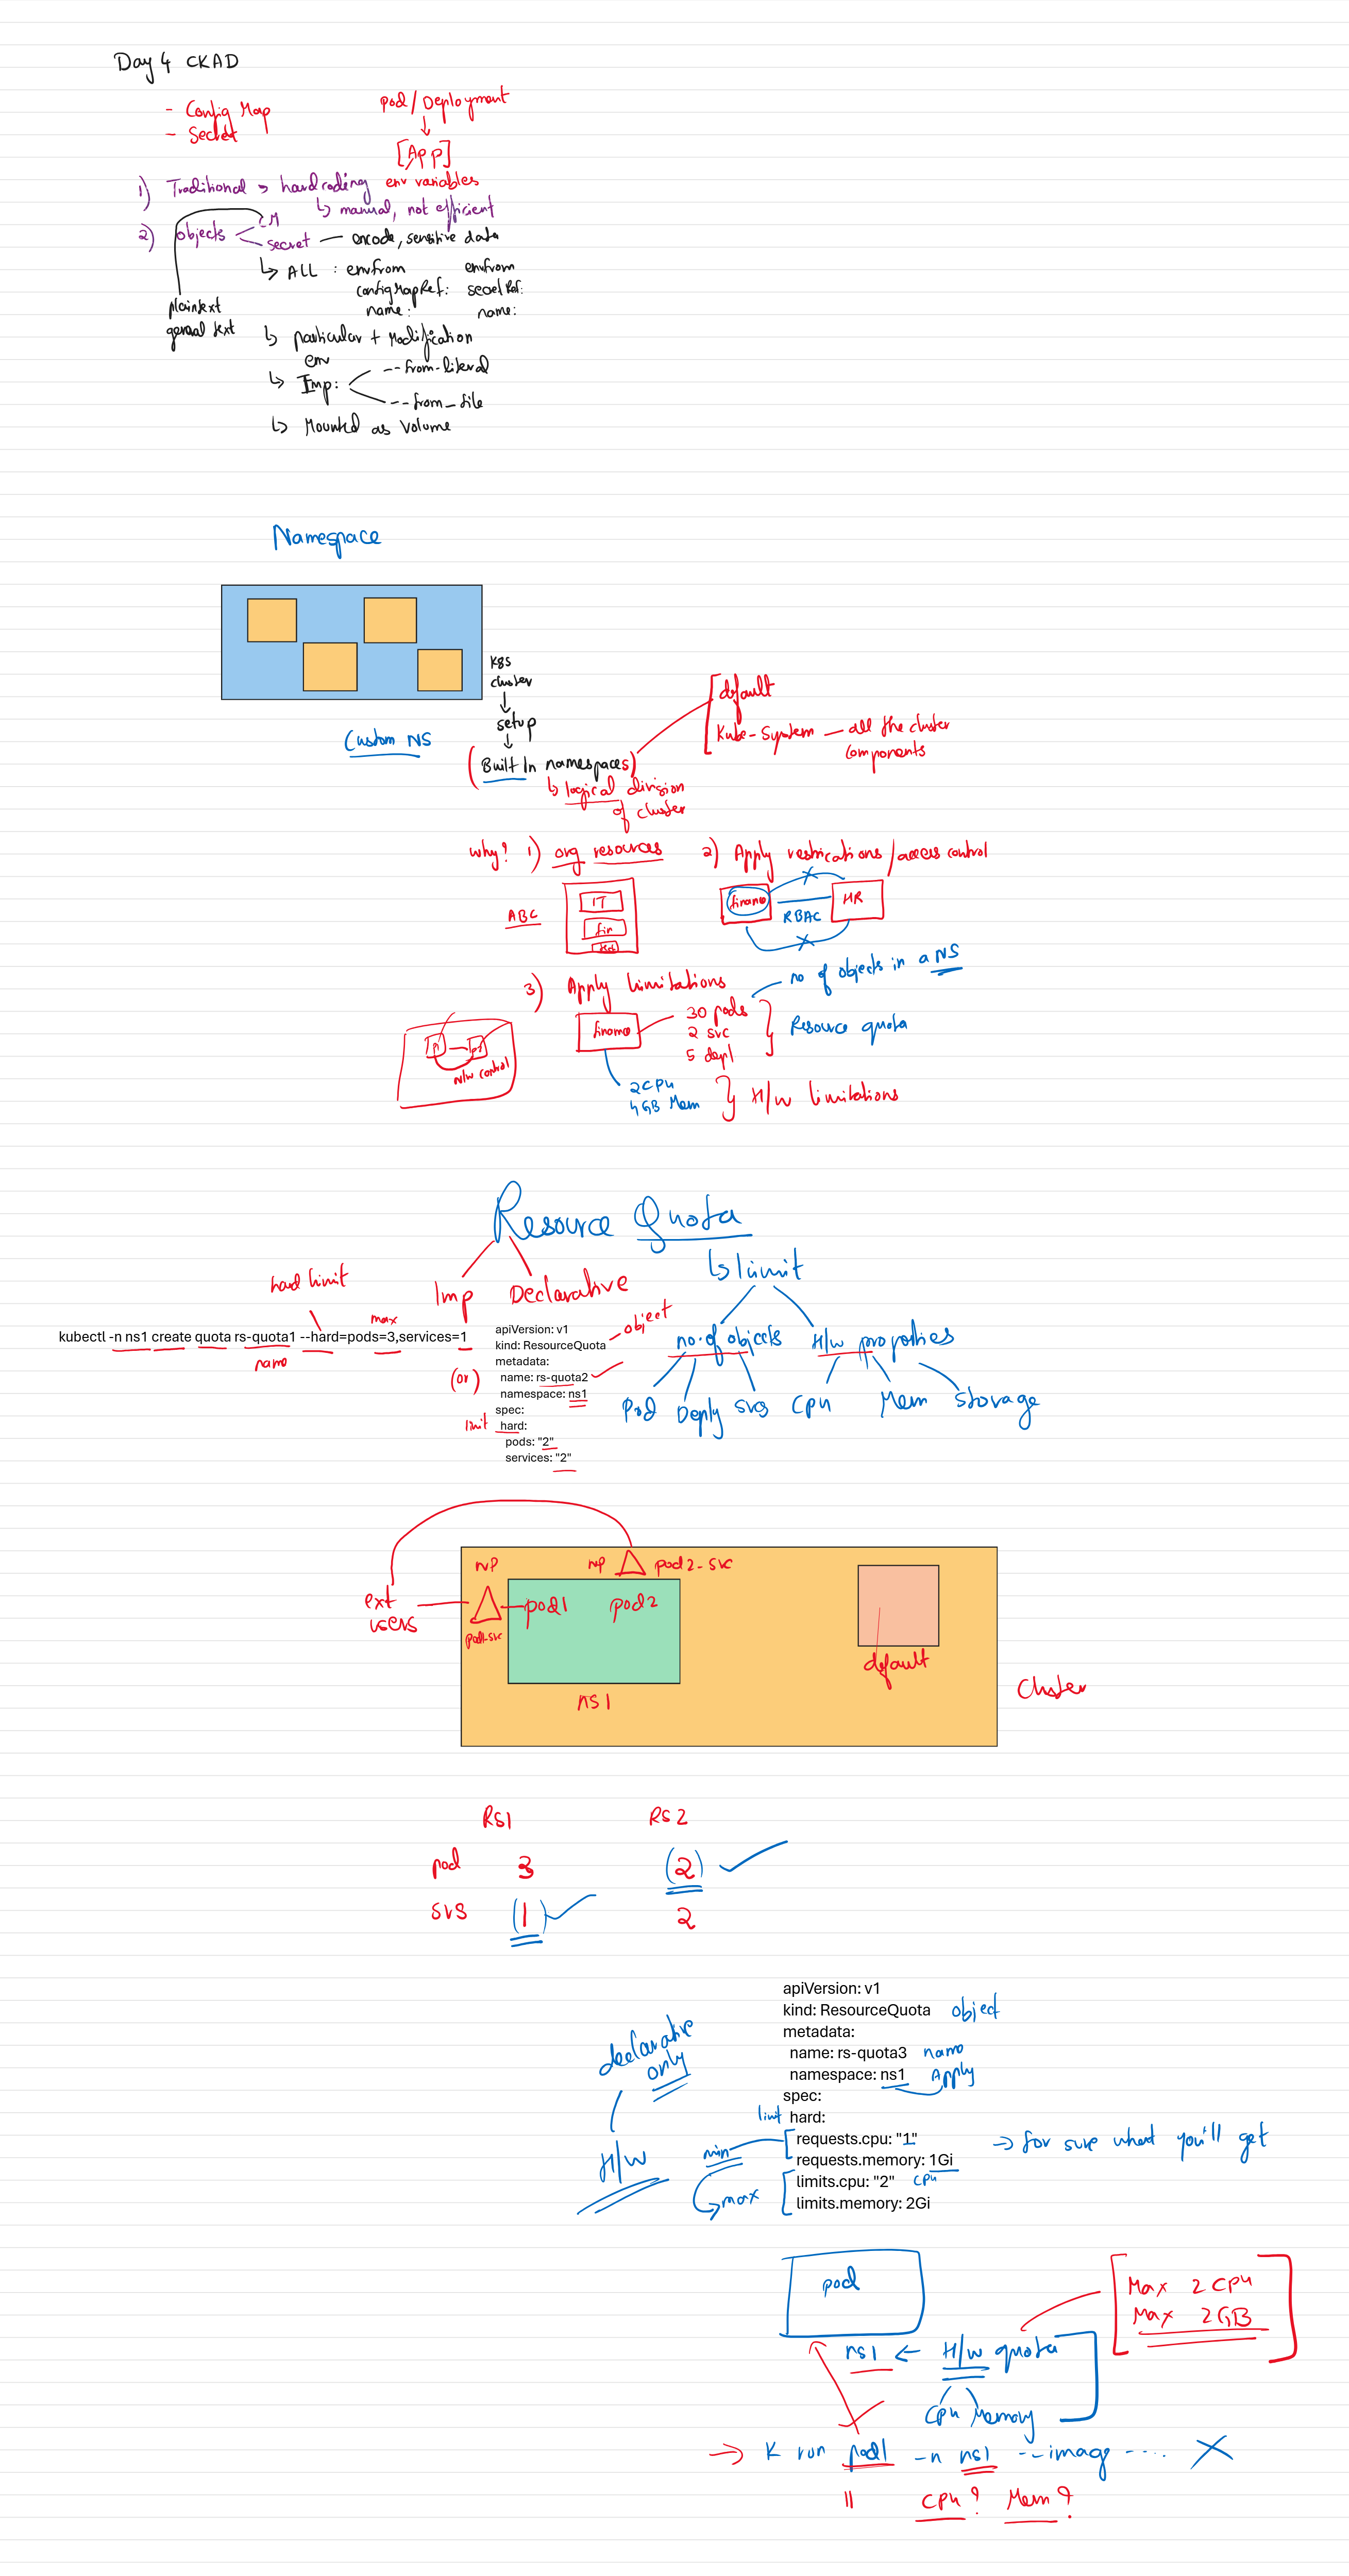 Day 4 CKAD
- Config Map
- Secret
pod / Deployment
[App]
1) Traditional → hardcoding env variables
↳ manual, not efficient
2) objects
CM
secret — encode, sensitive data
plaintext
general text
↳ ALL : envfrom
configMapRef:
name:
envfrom
secretRef:
name:
↳ particular + Modification
env
↳ Imp:
--from-literal
--from_file
↳ Mounted as Volume
Namespace
K8s
cluster
setup
(Built In namespaces)
Custom NS
default
Kube-System — all the cluster
components
↳ logical division
of cluster
why? 1) org resources
2) Apply restrications / access control
ABC
IT
fin
finance
RBAC
HR
3) Apply limitations
no of objects in a NS
finance
30 pods
2 svc
5 depl
Resource quota
N/w control
2CPU
4GB Mem
H/w limitations
Resource Quota
Imp
Declarative
↳ limit
hard limit
max
kubectl -n ns1 create quota rs-quota1 --hard=pods=3,services=1
name
(or)
apiVersion: v1
kind: ResourceQuota
object
metadata:
name: rs-quota2
namespace: ns1
spec:
limit
hard:
pods: "2"
services: "2"
no.of objects
H/w properties
Pod
Deploy
svs
CPU
Mem
storage
NP
NP
pod2-svc
ext
users
pod1
pod2
pod1-svc
default
NS1
Cluster
RS1
RS2
pod
3
(2)
svs
(1)
2
declarative
only
H/W
apiVersion: v1
kind: ResourceQuota
object
metadata:
name: rs-quota3
name
namespace: ns1
Apply
spec:
limit
hard:
min
requests.cpu: "1"
→ for sure what you'll get
requests.memory: 1Gi
max
limits.cpu: "2"
CPU
limits.memory: 2Gi
pod
Max 2 CPU
Max 2GB
ns1 ← H/w quota
CPU Memory
→ K run pod1 -n ns1 --imag ---- X
CPU? Mem?